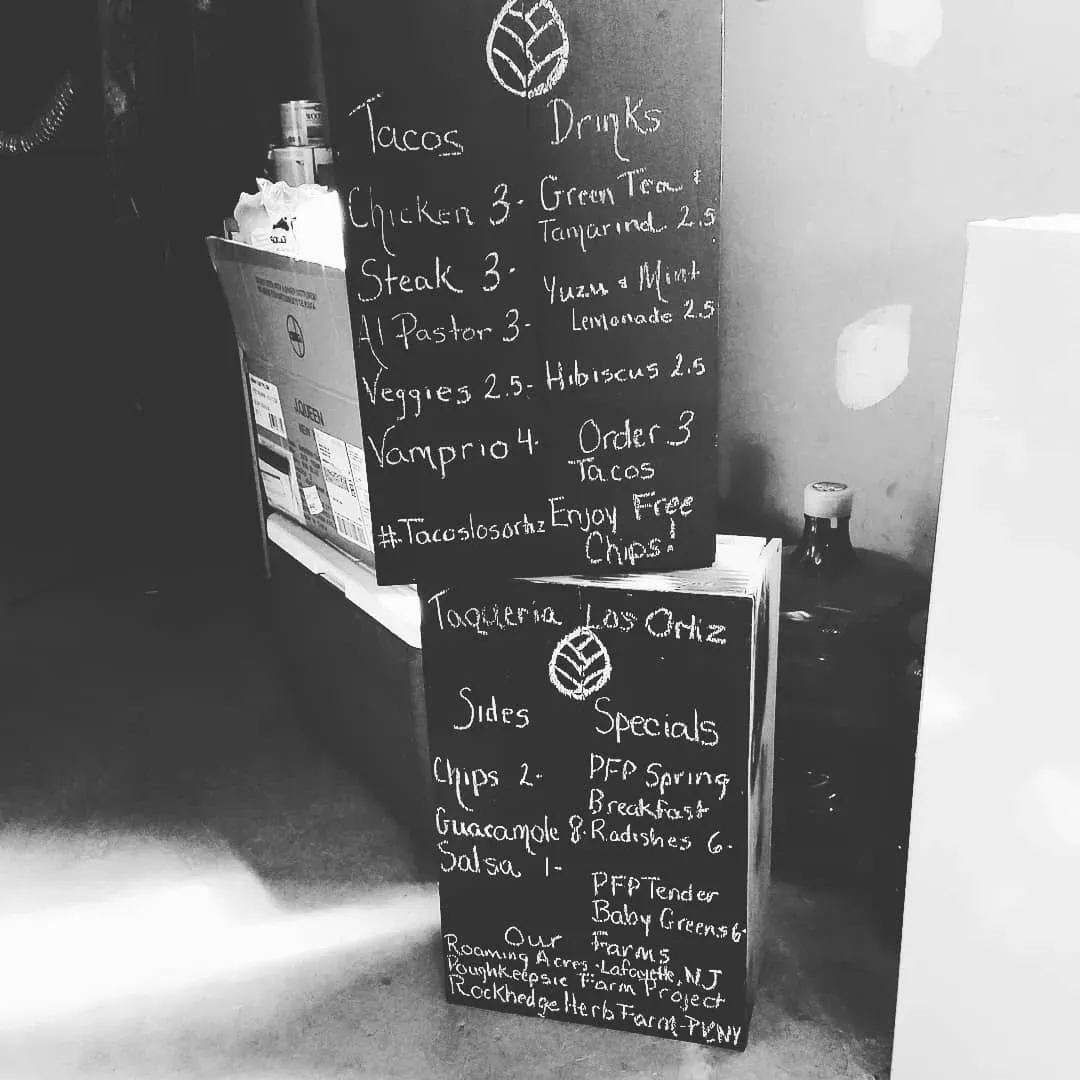 Tacos
Chicken 3-
Steak 3-
Al Pastor 3-
Veggies 2.5-
Vamprio 4-
#Tacoslosortiz
Drinks
Green Tea &
Tamarind 2.5
Yuzu & Mint
Lemonade 2.5
Hibiscus 2.5
Order 3
Tacos
Enjoy Free
Chips!
Taqueria Los Ortiz
Sides
Chips 2-
Guacamole 8-
Salsa 1-
Specials
PFP Spring
Breakfast
Radishes 6-
PFP Tender
Baby Greens 6-
Our Farms
Roaming Acres - Lafayette, NJ
Poughkeepsie Farm Project
Rockhedge Herb Farm - PVNY
J.QUEEN